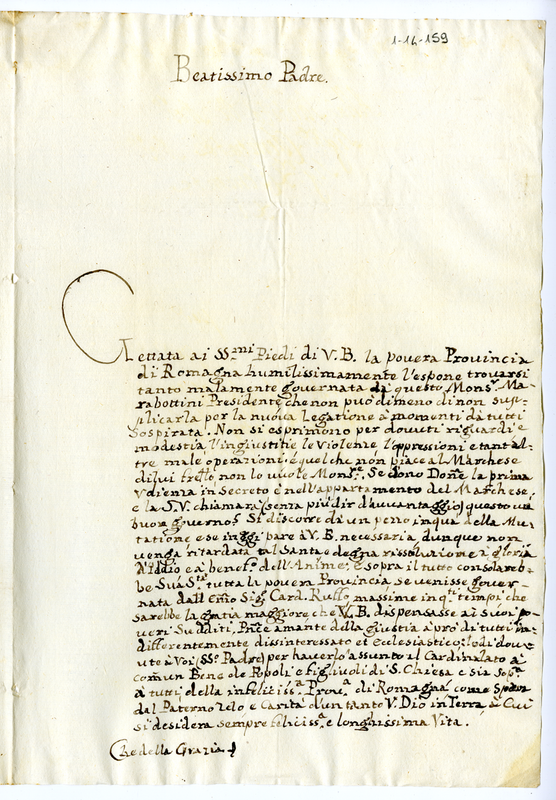 1-14-159
Beatissimo Padre.
Gettata ai SS.mi Piedi di V.B. la povera Provincia
di Romagna humilissimamente l'espone trovarsi
tanto malamente governata da questo Mons.r Ma-
rabottini Presidente che non può di meno di non sup-
plicarla per la nuova Legatione à momenti da tutti
Sospirata. Non si esprimono per dovuti riguardi e
modestia l'ingiustitie le Violenze l'oppressioni e tant'al-
tre male operazioni, e quel che non piace al Marchese
di lui frello non lo vuole Mons.re, Se dono Donne la prima
Udienza in Secreto è nell'appartamento del Marchese,
e la S.V. chiamarà (senza più dir d'avvantaggio) questo un
buon governo? Si discorre da un pezzo in quà della Mu-
tatione e se in oggi pare à V.B. necessaria, dunque non
venga ritardata tal Santa e degna rissoluzione à gloria
d'Iddio e à benef.o dell'Anime; e sopra il tutto consolareb-
be Sua S.tà tutta la povera Provincia se venisse gover-
nata dall'Emo Sig.r Card. Ruffo massime in q.ti tempi che
sarebbe la gratia maggiore che V.B. dispensasse ai Suoi po-
veri Sudditi, Pnĉe amante della giustitia à prò di tutti in-
differentemente dissinteressato et Eclesiastico; lodi dov-
ute à Voi (SS. Padre) per haverlo assunto al Cardinalato à
comun Bene de Popoli e figlivoli di S. Chiesa e sia
à tutti della infeliciss.a Prov.a di Romagna come Spera
dal Paterno Zelo e Carità d'un tanto V. Dio in Terra à Cui
si desidera sempre feliciss.a e longhissima Vita.
Che della Grazia